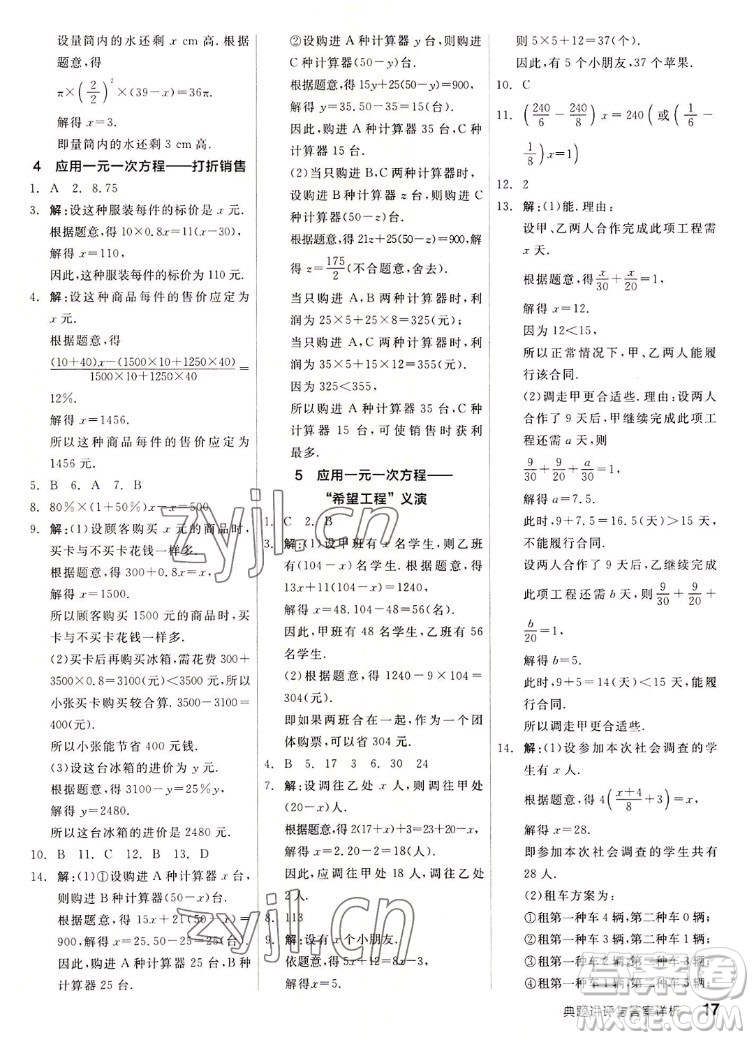 设量筒内的水还剩 x cm 高. 根据
题意,得
π×(2/2)²×(39-x)=36π.
解得 x=3.
即量筒内的水还剩 3 cm 高.
4 应用一元一次方程——打折销售
1. A 2. 8.75
3. 解:设这种服装每件的标价是 x 元.
根据题意,得 10×0.8x=11(x-30).
解得 x=110,
因此,这种服装每件的标价为 110 元.
4. 解:设这种商品每件的售价应定为
x 元.
根据题意,得
(10+40)x-(1500×10+1250×40)/1500×10+1250×40=
12%.
解得 x=1456.
所以这种商品每件的售价应定为
1456 元.
5. B 6. A 7. B
8. 80%×(1+50%)x-x=500
9. 解:(1)设顾客购买 x 元的商品时,
买卡与不买卡花钱一样多.
根据题意,得 300+0.8x=x.
解得 x=1500.
所以顾客购买 1500 元的商品时,买
卡与不买卡花钱一样多.
(2)买卡后再购买冰箱,需花费 300+
3500×0.8=3100(元)<3500 元,所以
小张买卡购买较合算. 3500-3100=
400(元).
所以小张能节省 400 元钱.
(3)设这台冰箱的进价为 y 元.
根据题意,得 3100-y=25%y.
解得 y=2480.
所以这台冰箱的进价是 2480 元.
10. B 11. C 12. B 13. D
14. 解:(1)①设购进 A 种计算器 x 台,
则购进 B 种计算器(50-x)台.
根据题意,得 15x+21(50-x)=
900,解得 x=25. 50-25=25(台).
因此,购进 A 种计算器 25 台,B 种
计算器 25 台.
②设购进 A 种计算器 y 台,则购进
C 种计算器(50-y)台.
根据题意,得 15y+25(50-y)=900,
解得 y=35. 50-35=15(台).
因此,购进 A 种计算器 35 台,C 种
计算器 15 台.
(2)当只购进 B,C 两种计算器时,
设购进 B 种计算器 z 台,则购进 C
种计算器(50-z)台.
根据题意,得 21z+25(50-z)=900,
解得 z=175/2(不合题意,舍去).
当只购进 A,B 两种计算器时,利
润为 25×5+25×8=325(元);
当只购进 A,C 两种计算器时,利
润为 35×5+15×12=355(元).
因为 325<355,
所以购进 A 种计算器 35 台,C 种
计算器 15 台,可使销售时获利
最多.
5 应用一元一次方程——
“希望工程”义演
1. C 2. B
3. 解:(1)设甲班有 x 名学生,则乙班
有(104-x)名学生.根据题意,得
13x+11(104-x)=1240,
解得 x=48. 104-48=56(名).
因此,甲班有 48 名学生,乙班有 56
名学生.
(2)根据题意,得 1240-9×104=
304(元).
即如果两班合在一起,作为一个团
体购票,可以省 304 元.
4. B 5. 17 3 6. 30 24
7. 解:设调往乙处 x 人,则调往甲处
(20-x)人.
根据题意,得 2(17+x)+3=23+20-x,
解得 x=2. 20-2=18(人).
因此,应调往甲处 18 人,调往乙处
2 人.
8. 113
9. 解:设有 x 个小朋友.
依题意,得 5x+12=8x-3,
解得 x=5.
则 5×5+12=37(个).
因此,有 5 个小朋友,37 个苹果.
10. C
11. (240/6-240/8)x=240(或(1/6-
1/8)x=1)
12. 2
13. 解:(1)能. 理由:
设甲、乙两人合作完成此项工程需
x 天.
根据题意,得 x/30+x/20=1,
解得 x=12.
因为 12<15,
所以正常情况下,甲、乙两人能履
行该合同.
(2)调走甲更合适些. 理由:设两人
合作了 9 天后,甲继续完成此项工
程还需 a 天,则
9/30+9/20+a/30=1,
解得 a=7.5.
此时,9+7.5=16.5(天)>15(天),
不能履行合同.
设两人合作了 9 天后,乙继续完成
此项工程还需 b 天,则 9/30+9/20+
b/20=1,
解得 b=5.
此时,9+5=14(天)<15(天),能履行
合同.
所以调走甲更合适些.
14. 解:(1)设参加本次社会调查的学
生有 x 人.
根据题意,得 4(x+4/8+3)=x+4,
解得 x=28.
即参加本次社会调查的学生共有
28 人.
(2)租车方案为:
①租第一种车 4 辆,第二种车 0 辆;
②租第一种车 3 辆,第二种车 2 辆;
③租第一种车 2 辆,
④租第一种车 1 辆,
典题讲评与答案详析 17
zyjl.cn
zyjl.cn